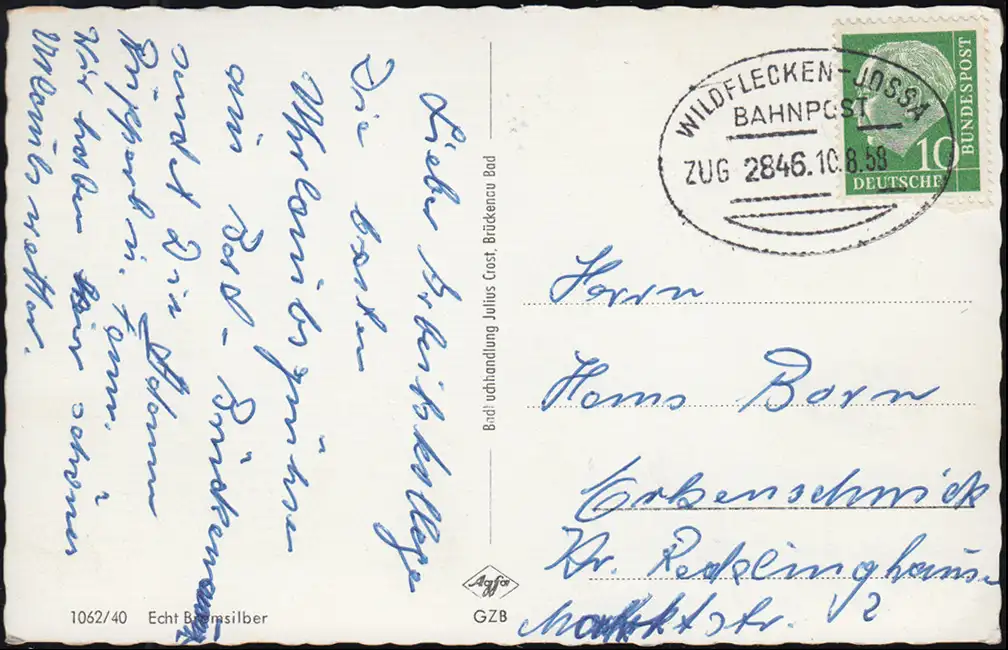 Lieber Arbeitskollege
Die besten
Urlaubsgrüße
aus Bad-Brückenau
sendet Dir Adam
Rippert u. Fam.
Wir haben schönes
Urlaubswetter.
Badbuchhandlung Julius Crost, Brückenau Bad
WILDFLECKEN-JOSSA
BAHNPOST
ZUG 2846.10.8.58
10
DEUTSCHE
BUNDESPOST
Herrn
Hans Born
Erkenschwick
Kr. Recklinghausen
Marktstr. 2
Agfa
1062/40 Echt Bromsilber GZB